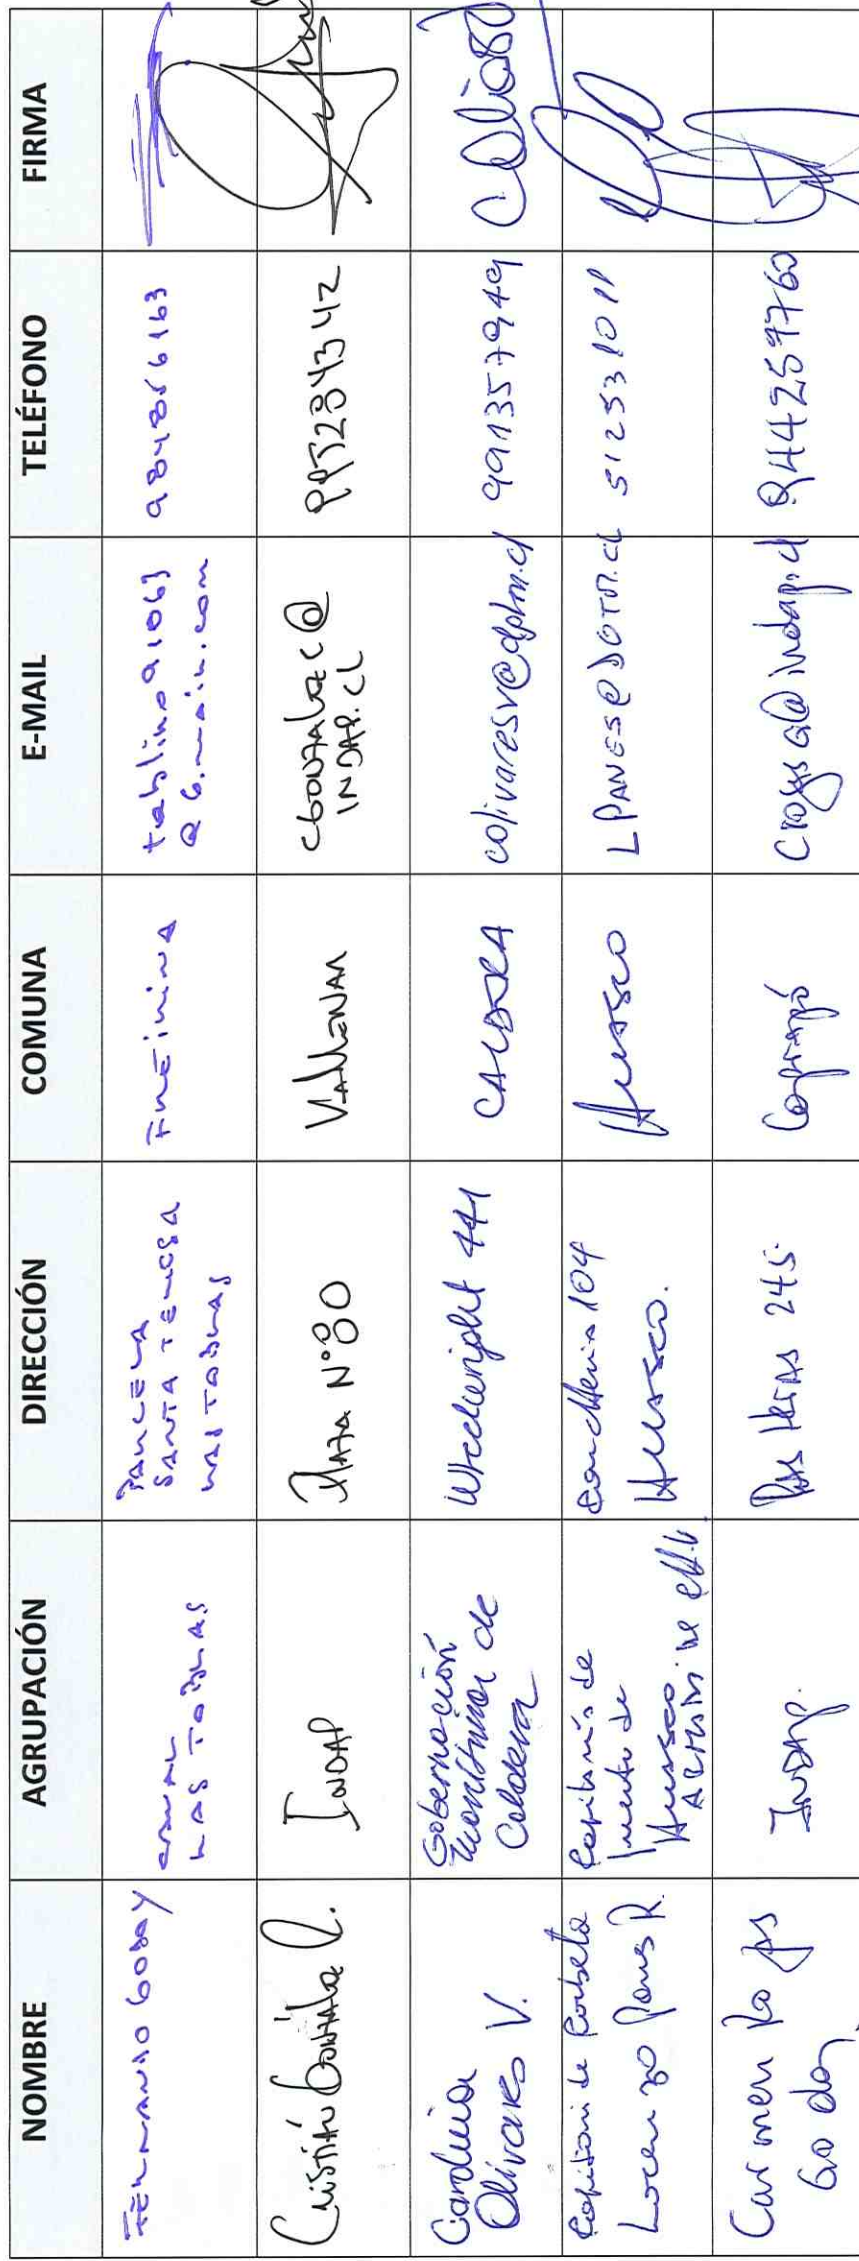 NOMBRE AGRUPACIÓN DIRECCIÓN COMUNA E-MAIL TELÉFONO FIRMA
FERNANDO GODOY
CANAL
LAS TABLAS
PARCELA
SANTA TERESA
LAS TABLAS
FREIRINA
@ G.mail.com
Cristián González R.
INDAP
PLAZA N°80
VALLENAR
CGONZALEZC@
INDAP.CL
995284342
Carolina
Olivares V.
Gobernación
Marítima de
Caldera
Wheelwright 441
CALDERA
colivaresv@dgtm.cl
9913579949
Capitán de Corbeta
Lorenzo Panes R.
Capitanía de
Puerto de
Huasco
104
Huasco.
Huasco
LPANES@DGTM.CL
512531011
Carmen Rojas
Godoy
INDAP.
245.
Copiapó
@indap.cl